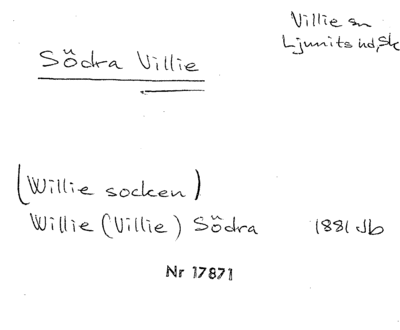 Villie sn
Ljunits hd, Sk
Södra Villie
(Willie socken)
Willie (Villie) Södra 1881 Jb
Nr 17871